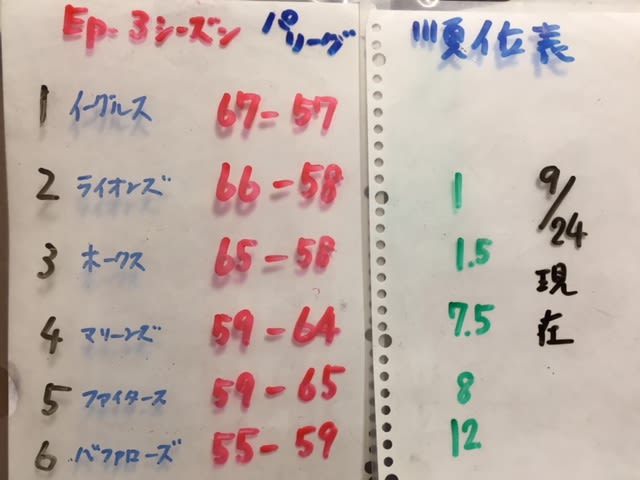 Ep. 3シーズン パリーグ 順位表
1 イーグルス 67-57
2 ライオンズ 66-58 1
3 ホークス 65-58 1.5
4 マリーンズ 59-64 7.5
5 ファイターズ 59-65 8
6 バファローズ 55-59 12
9/24
現
在